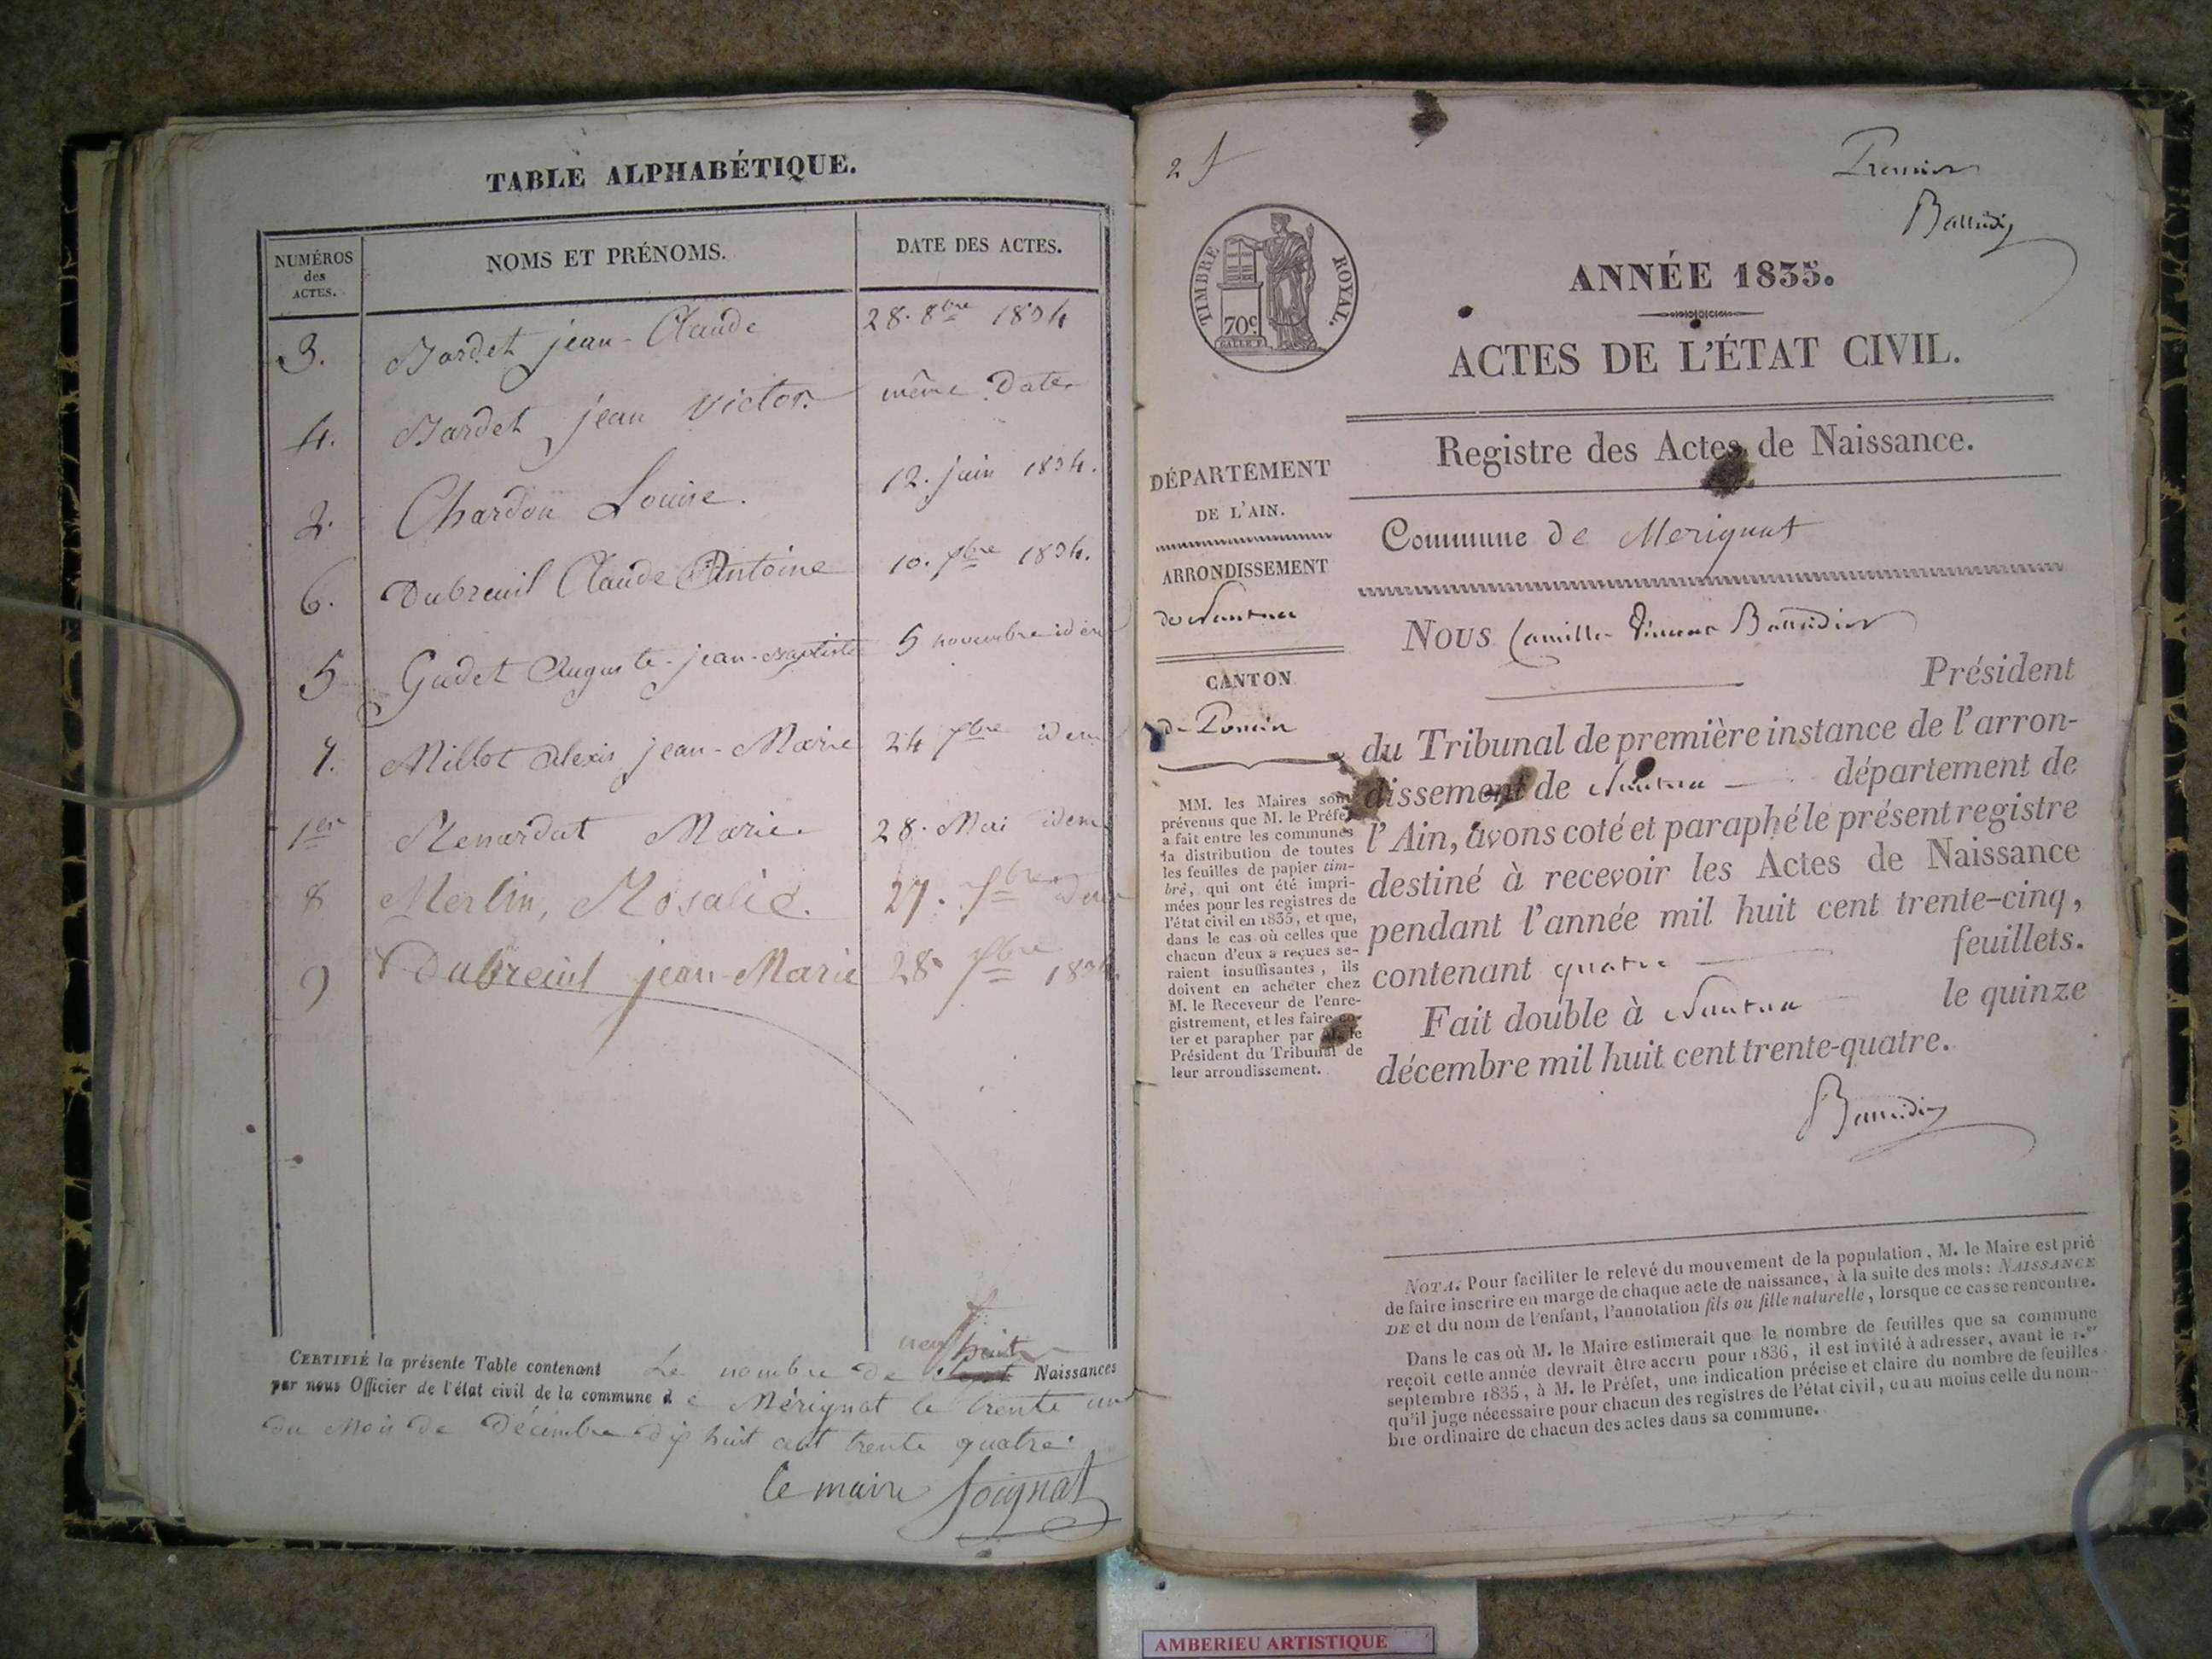 TABLE ALPHABÉTIQUE.
NUMÉROS des ACTES.
NOMS ET PRÉNOMS.
DATE DES ACTES.
3. Bardet jean-Claude 28. 8bre 1834
4. Bardet jean Victor. même Date
2. Chardon Louise. 12. juin 1834.
6. Dubreuil Claude Antoine 10. xbre 1834.
5 Gudet Auguste-jean-Baptiste 5 novembre idem
7. Millot alexis jean-Marie 24 xbre idem
1er Renardat Marie. 28. Mai idem
8 Merlin, Rosalie. 27. xbre idem
9 Dubreuil jean-Marie 28 xbre 1834.
neuf huit
CERTIFIÉ la présente Table contenant Le nombre de sept Naissances
par nous Officier de l'état civil de la commune de Mérignat le trente un
du Mois de Décembre dix huit cent trente quatre.
le maire Soignat
2 f
Premier
TIMBRE ROYAL.
70c
ANNÉE 1835.
ACTES DE L'ÉTAT CIVIL.
Registre des Actes de Naissance.
DÉPARTEMENT
DE L'AIN.
ARRONDISSEMENT
de Nantua
CANTON
de Poncin
MM. les Maires sont
prévenus que M. le Préfet
a fait entre les communes
la distribution de toutes
les feuilles de papier tim-
bré, qui ont été impri-
mées pour les registres de
l'état civil en 1835, et que,
dans le cas où celles que
chacun d'eux a reçues se-
raient insuffisantes, ils
doivent en acheter chez
M. le Receveur de l'enre-
gistrement, et les faire co-
ter et parapher par M. le
Président du Tribunal de
leur arrondissement.
Commune de Merignat
Nous Camille
Président
du Tribunal de première instance de l'arron-
dissement de Nantua département de
l'Ain, avons coté et paraphé le présent registre
destiné à recevoir les Actes de Naissance
pendant l'année mil huit cent trente-cinq,
contenant quatre feuillets.
Fait double à Nantua le quinze
décembre mil huit cent trente-quatre.
NOTA. Pour faciliter le relevé du mouvement de la population, M. le Maire est prié
de faire inscrire en marge de chaque acte de naissance, à la suite des mots: NAISSANCE
DE et du nom de l'enfant, l'annotation fils ou fille naturelle, lorsque ce cas se rencontre.
Dans le cas où M. le Maire estimerait que le nombre de feuilles que sa commune
reçoit cette année devrait être accru pour 1836, il est invité à adresser, avant le 1.er
septembre 1835, à M. le Préfet, une indication précise et claire du nombre de feuilles
qu'il juge nécessaire pour chacun des registres de l'état civil, ou au moins celle du nom-
bre ordinaire de chacun des actes dans sa commune.
AMBERIEU ARTISTIQUE